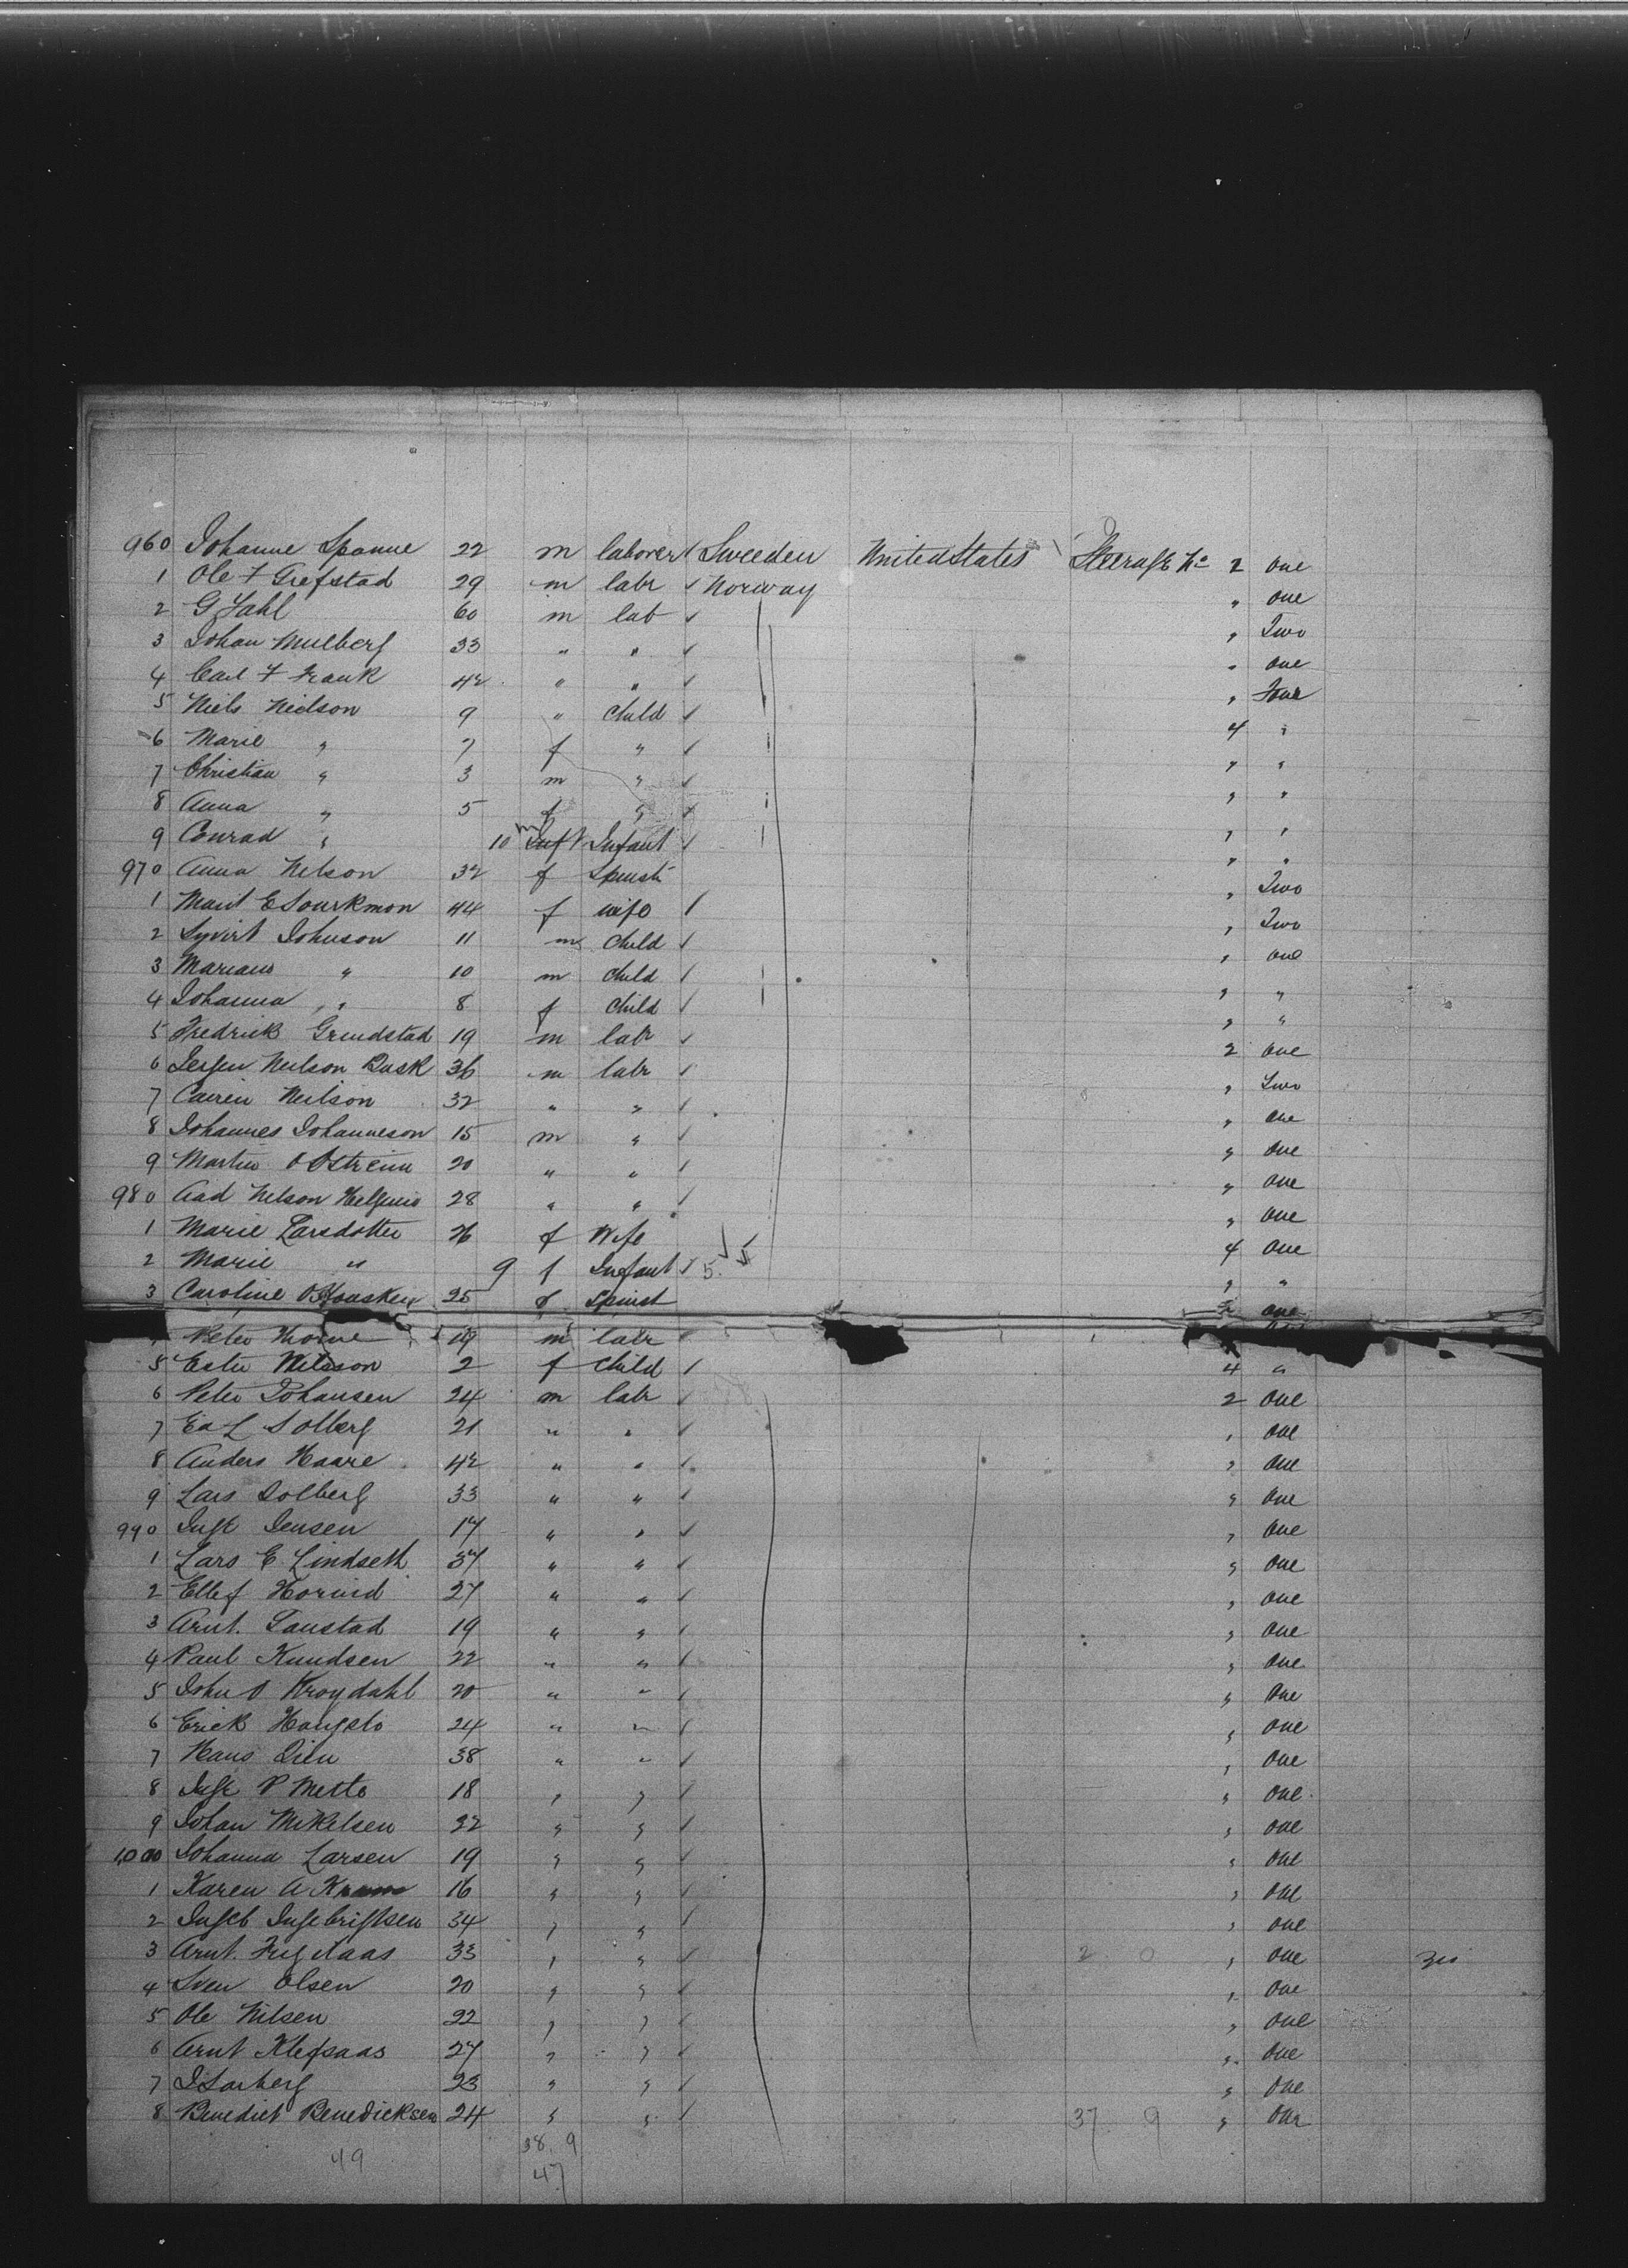 960 Johanne Spanne 22 m laborer Sweeden United States Steerage No 2 one
1 Ole F Grefstad 29 m labr Norway " one
2 G Dahl 60 m lab " Two
3 Johan Mulberg 33 " " " one
4 Carl F Frank 42 " " "
5 Niels Neilson 9 " child 4 "
6 Marie " 7 f " " "
7 Christian " 3 m " " "
8 Anna " 5 f " " "
9 Conrad " 10 m Inft Infant " "
970 Anna Nelson 32 f Spinst " Two
1 Marit E 44 f wife " Two
2 Syvert Johnson 11 m child " one
3 " 10 m child " "
4 Johanna " 8 f child " "
5 Fredrick Grundstad 19 m labr 2 one
6 Neilson Rask 36 m labr " Two
7 Neilson 32 " " " one
8 Johannes Johanneson 15 m " " one
9 Martin O 20 " " " one
980 Aad Nelson 28 " " " one
1 Marie Larsdotter 26 f Wife 4 one
2 Marie " 9 f Infant 5 " "
3 Caroline 25 f Spinst 2 one
Peter 19 m labr
5 2 f child 4 "
6 Peter Johansen 24 m labr 2 one
7 L Solberg 21 " " " one
8 Anders Haare 42 " " " one
9 Lars Solberg 33 " " " one
990 Inge Jensen 17 " " " one
1 Lars E Lindseth 37 " " " one
2 Ellef 27 " " " one
3 Arnt. 19 " " " one
4 Paul Knudsen 22 " " " one
5 John O 20 " " " one
6 Erick Haugslo 24 " " " one
7 Hans Lien 38 " " " one
8 Inge P 18 " " " one
9 Johan Mikelsen 22 " " " one
1,000 Johanna Larsen 19 " " " one
1 Karen A 16 " " " one
2 Ingebrigtsen 34 " " " one
3 Arnt. 33 " " 2 0 " one
4 Sven Olsen 20 " " " one
5 Ole Nilsen 22 " " " one
6 Arnt Klefsaas 27 " " " one
7 23 " " " one
8 Benedict Benedicksen 24 " " 37 9 " one
49 38. 9
47